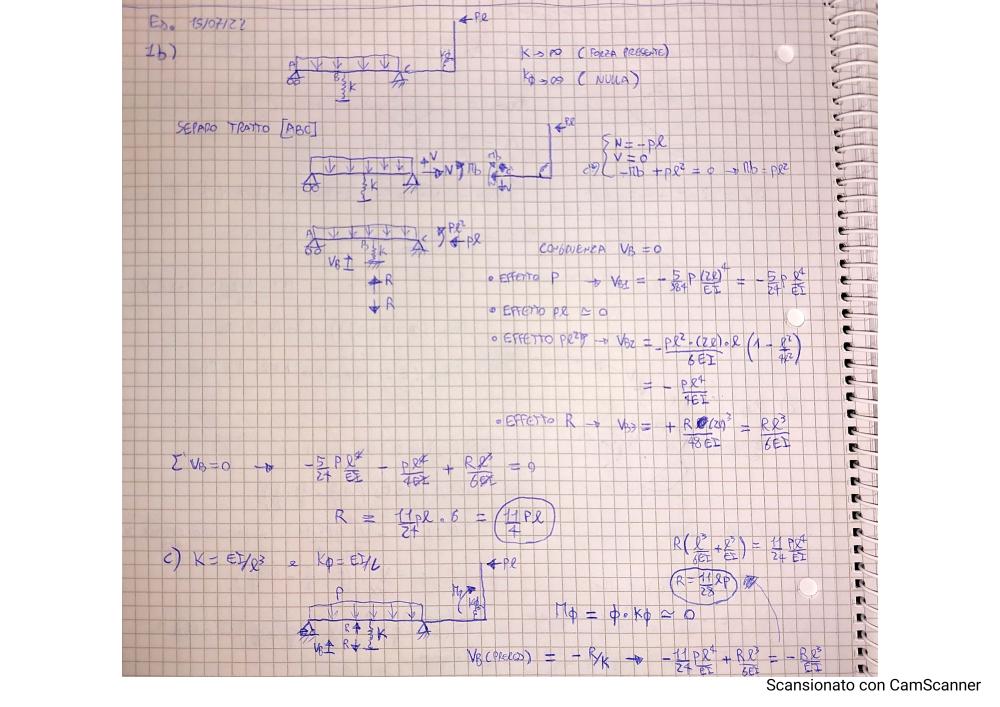 Es. 15/07/22
1b)
← Pl
K → ∞ (FORZA PRESENTE)
Kϕ → ∞ (NULLA)
A B C K Kϕ
SEPARO TRATTO [ABC]
← Pl
+V N Mb Mb
K
N = -pl
V = 0
-Mb + pl² = 0 → Mb = pl²
A B K C Pl² ← pl
VB ↑
R
R
CONGRUENZA VB = 0
• EFFETTO P → VB1 = -5/384 P (2l)⁴/EI = -5/24 P l⁴/EI
• EFFETTO pl ≃ 0
• EFFETTO Pl² → VB2 = -Pl²·(2l)·l/6EI (1 - l²/4l²)
= - Pl⁴/4EI
• EFFETTO R → VB3 = + R (2l)³/48EI = Rl³/6EI
Σ VB = 0 → -5/24 P l⁴/EI - pl⁴/4EI + Rl³/6EI = 0
R = 11/24 pl · 6 = 11/4 Pl
c) K = EI/l³ e Kϕ = EI/L
R(l³/6EI + l³/EI) = 11/24 Pl⁴/EI
R = 11/28 lp
← Pl
P
Mϕ Kϕ
R K
VB ↑ R
Mϕ = ϕ · Kϕ ≃ 0
VB (PRECED) = - R/K → -11/24 Pl⁴/EI + Rl³/6EI = - Rl³/EI
Scansionato con CamScanner